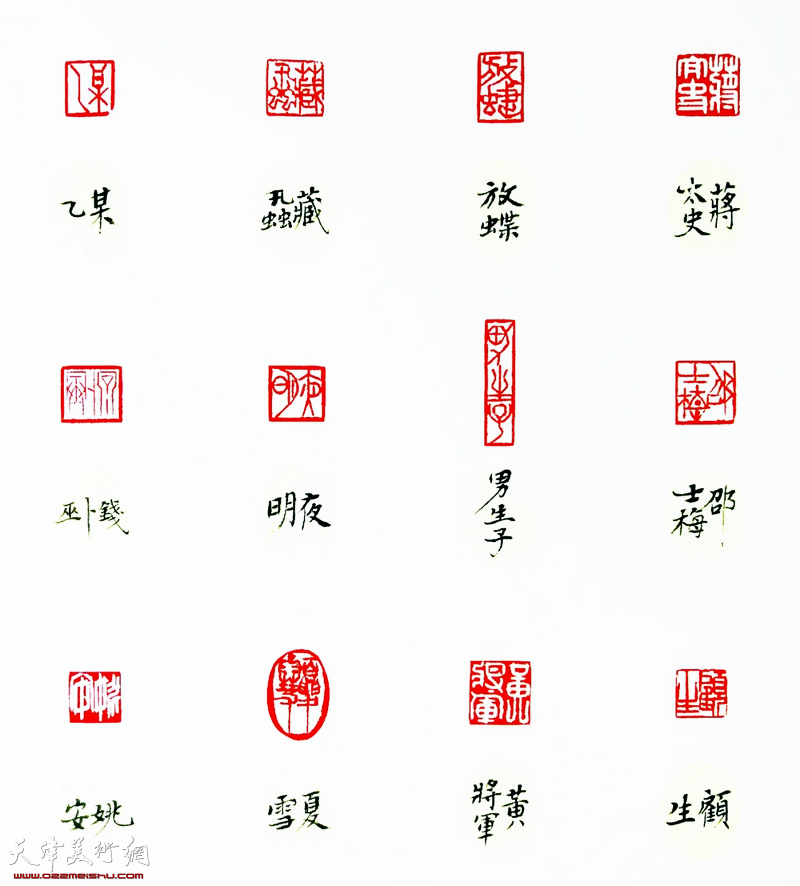 蔣太史
放蝶
藏
某乙
邵士梅
男生子
夜明
錢卜巫
顧生
黃將軍
夏雪
姚安
天津美術網
www.022meishu.com